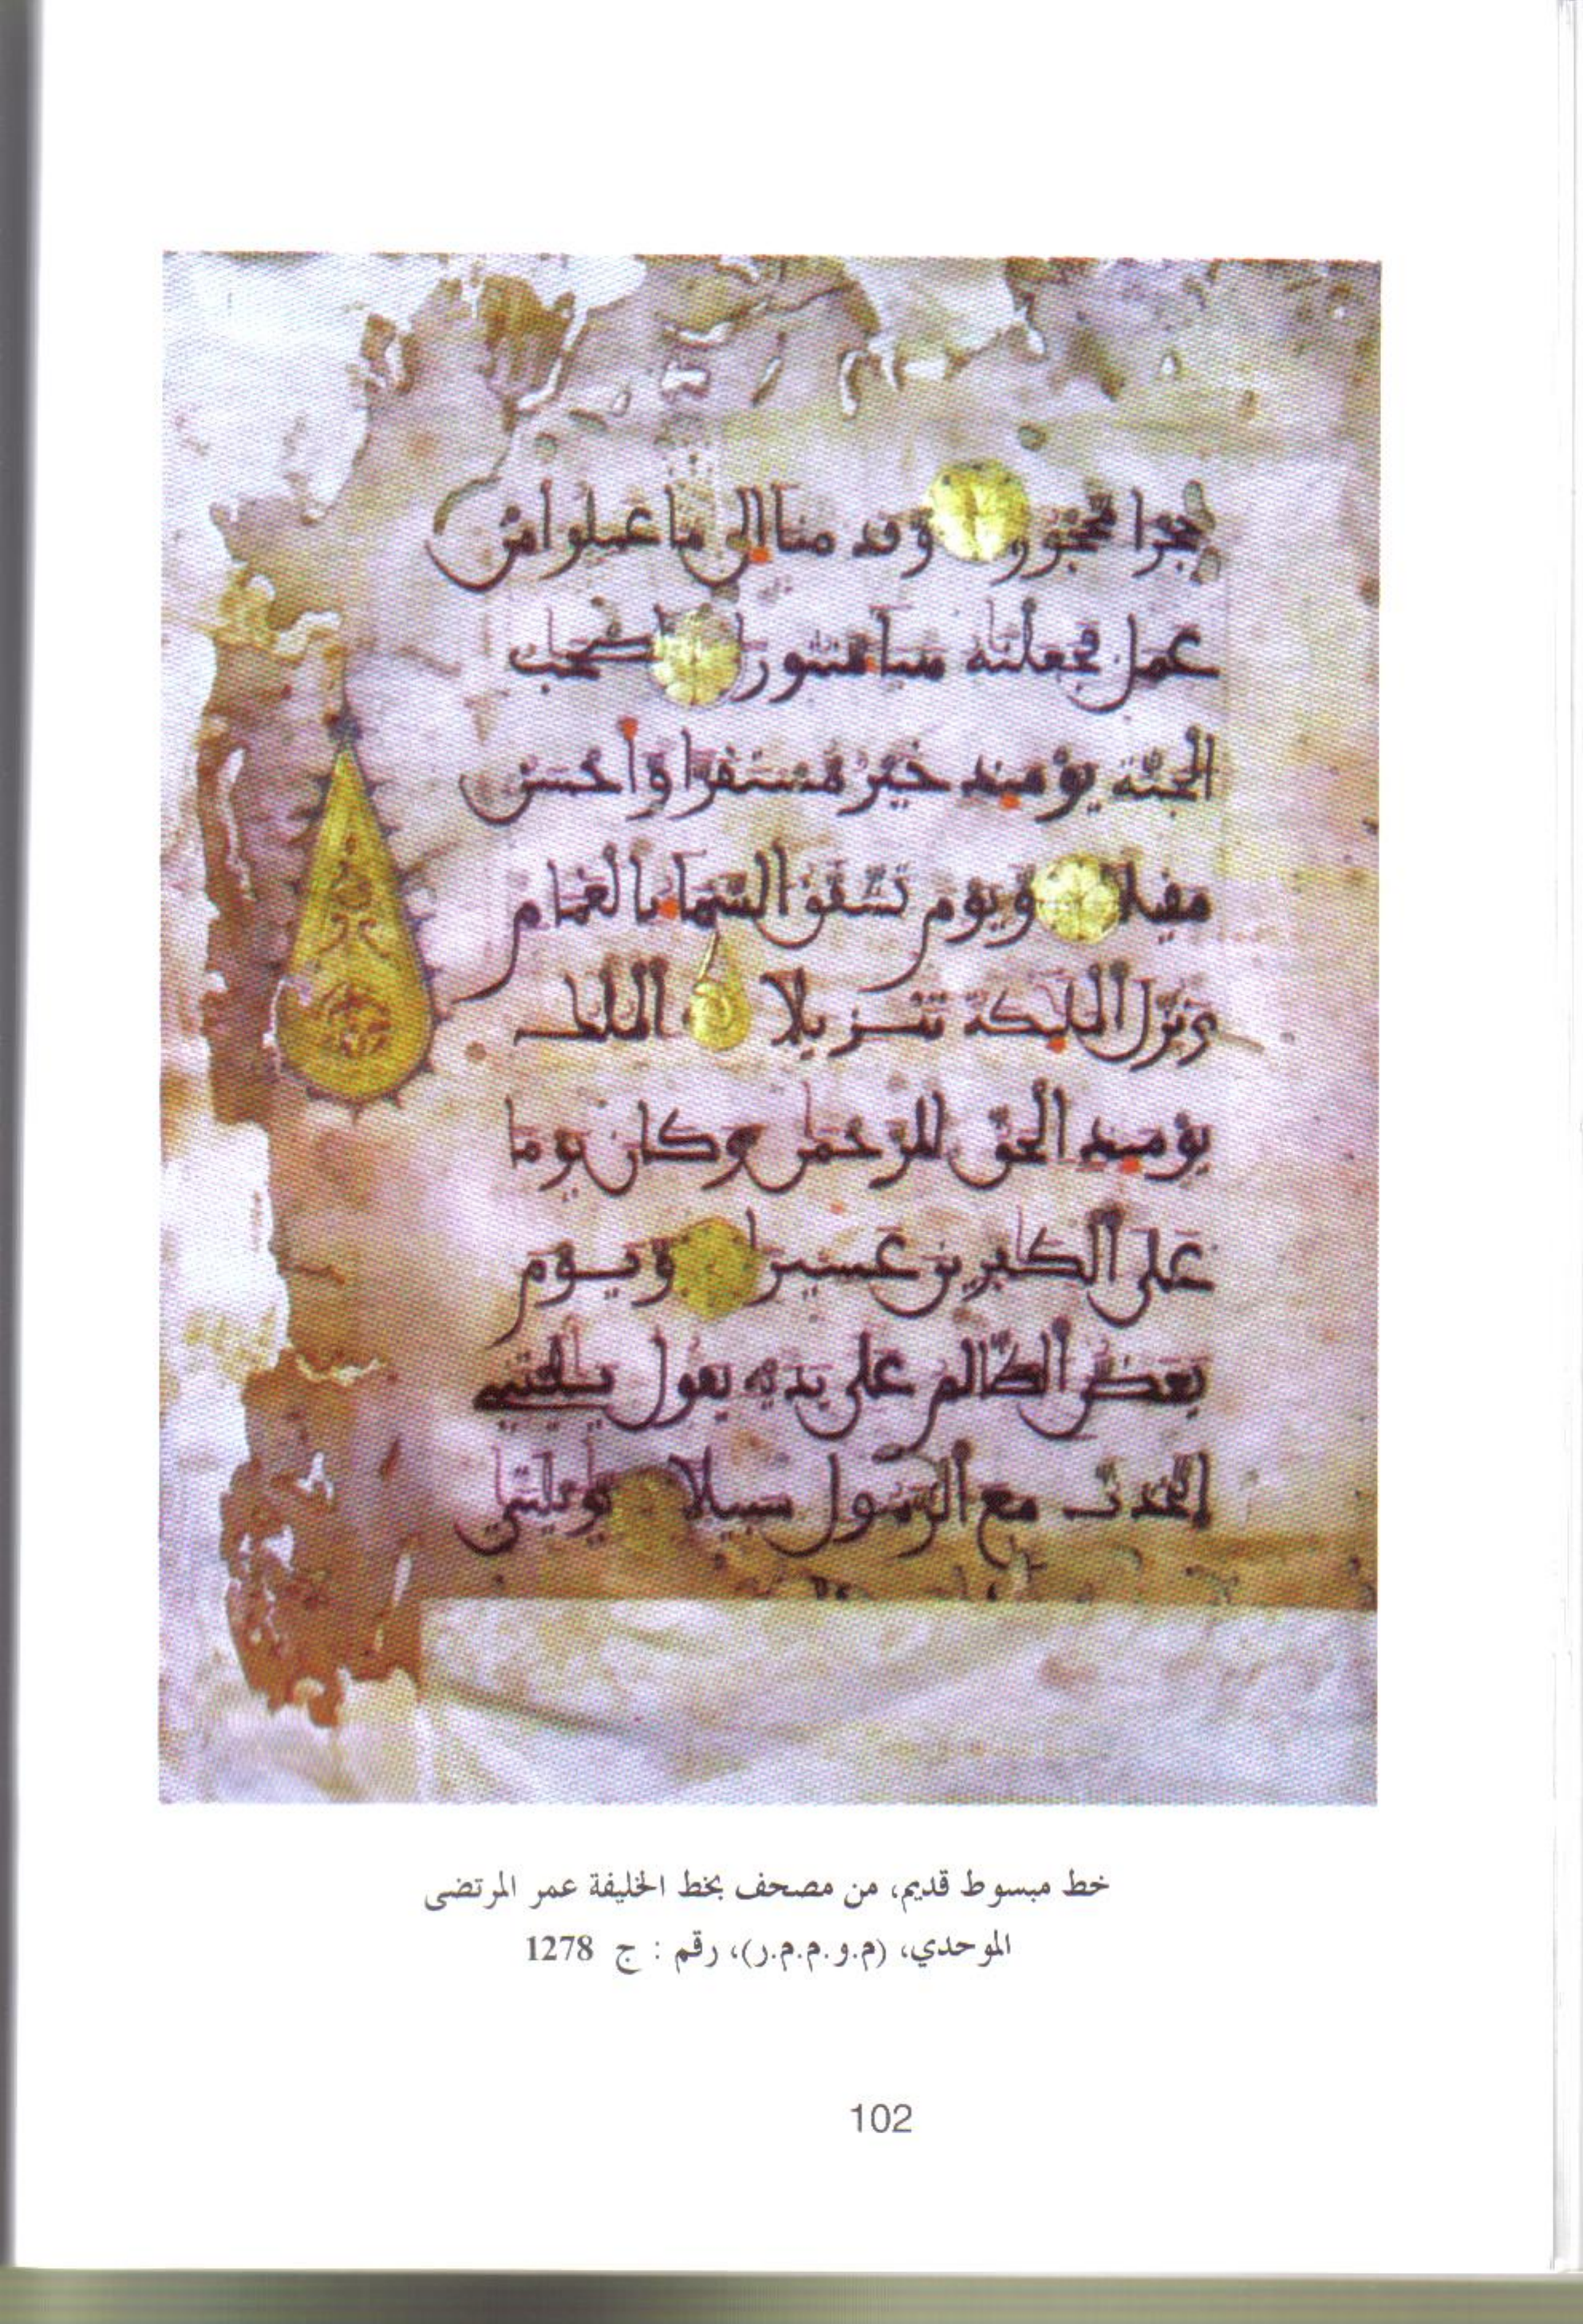 حجرا محجورا وقدمنا إلى ما عملوا من
عمل فجعلنه هبا منثورا أصحب
الجنة يومئذ خير مستقرا وأحسن
مقيلا ويوم تشقق السما بالغمام
ونزل الملئكة تنزيلا الملك
يومئذ الحق للرحمن وكان يوما
على الكفرين عسيرا ويوم
يعض الظالم على يديه يقول يليتني
اتخذت مع الرسول سبيلا يويلتى
خط مبسوط قديم، من مصحف بخط الخليفة عمر المرتضى
الموحدي، (م.و.م.م.ر)، رقم : ج 1278
102